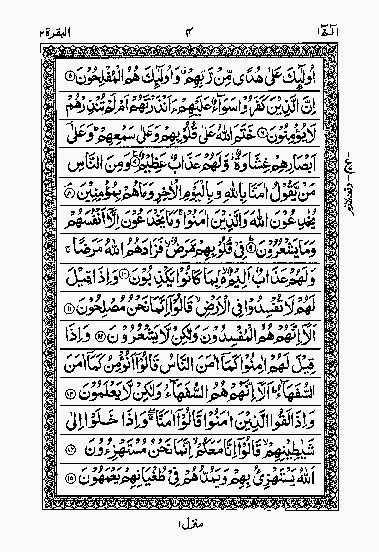 البقرة ٢
٤
الٓمّٓ ١
اُولٰٓئِكَ عَلٰى هُدًى مِّنْ رَّبِّهِمْ وَاُولٰٓئِكَ هُمُ الْمُفْلِحُوْنَ ۝٥
اِنَّ الَّذِيْنَ كَفَرُوْا سَوَآءٌ عَلَيْهِمْ ءَاَنْذَرْتَهُمْ اَمْ لَمْ تُنْذِرْهُمْ
لَا يُؤْمِنُوْنَ ۝٦ خَتَمَ اللّٰهُ عَلٰى قُلُوْبِهِمْ وَعَلٰى سَمْعِهِمْ ؕ وَعَلٰٓى
اَبْصَارِهِمْ غِشَاوَةٌ ؗ وَّلَهُمْ عَذَابٌ عَظِيْمٌ ۝٧ وَمِنَ النَّاسِ
مَنْ يَّقُوْلُ اٰمَنَّا بِاللّٰهِ وَبِالْيَوْمِ الْاٰخِرِ وَمَا هُمْ بِمُؤْمِنِيْنَ ۝٨
يُخٰدِعُوْنَ اللّٰهَ وَالَّذِيْنَ اٰمَنُوْا ۚ وَمَا يَخْدَعُوْنَ اِلَّآ اَنْفُسَهُمْ
وَمَا يَشْعُرُوْنَ ۝٩ فِيْ قُلُوْبِهِمْ مَّرَضٌ ۙ فَزَادَهُمُ اللّٰهُ مَرَضًا ۚ
وَلَهُمْ عَذَابٌ اَلِيْمٌۢ ۙ بِمَا كَانُوْا يَكْذِبُوْنَ ۝١٠ وَاِذَا قِيْلَ
لَهُمْ لَا تُفْسِدُوْا فِي الْاَرْضِ ۙ قَالُوْٓا اِنَّمَا نَحْنُ مُصْلِحُوْنَ ۝١١
اَلَآ اِنَّهُمْ هُمُ الْمُفْسِدُوْنَ وَلٰكِنْ لَّا يَشْعُرُوْنَ ۝١٢ وَاِذَا
قِيْلَ لَهُمْ اٰمِنُوْا كَمَآ اٰمَنَ النَّاسُ قَالُوْٓا اَنُؤْمِنُ كَمَآ اٰمَنَ
السُّفَهَآءُ ؕ اَلَآ اِنَّهُمْ هُمُ السُّفَهَآءُ وَلٰكِنْ لَّا يَعْلَمُوْنَ ۝١٣
وَاِذَا لَقُوا الَّذِيْنَ اٰمَنُوْا قَالُوْٓا اٰمَنَّا ۚ وَاِذَا خَلَوْا اِلٰى
شَيٰطِيْنِهِمْ ۙ قَالُوْٓا اِنَّا مَعَكُمْ ۙ اِنَّمَا نَحْنُ مُسْتَهْزِءُوْنَ ۝١٤
اَللّٰهُ يَسْتَهْزِئُ بِهِمْ وَيَمُدُّهُمْ فِيْ طُغْيَانِهِمْ يَعْمَهُوْنَ ۝١٥
منزل ١